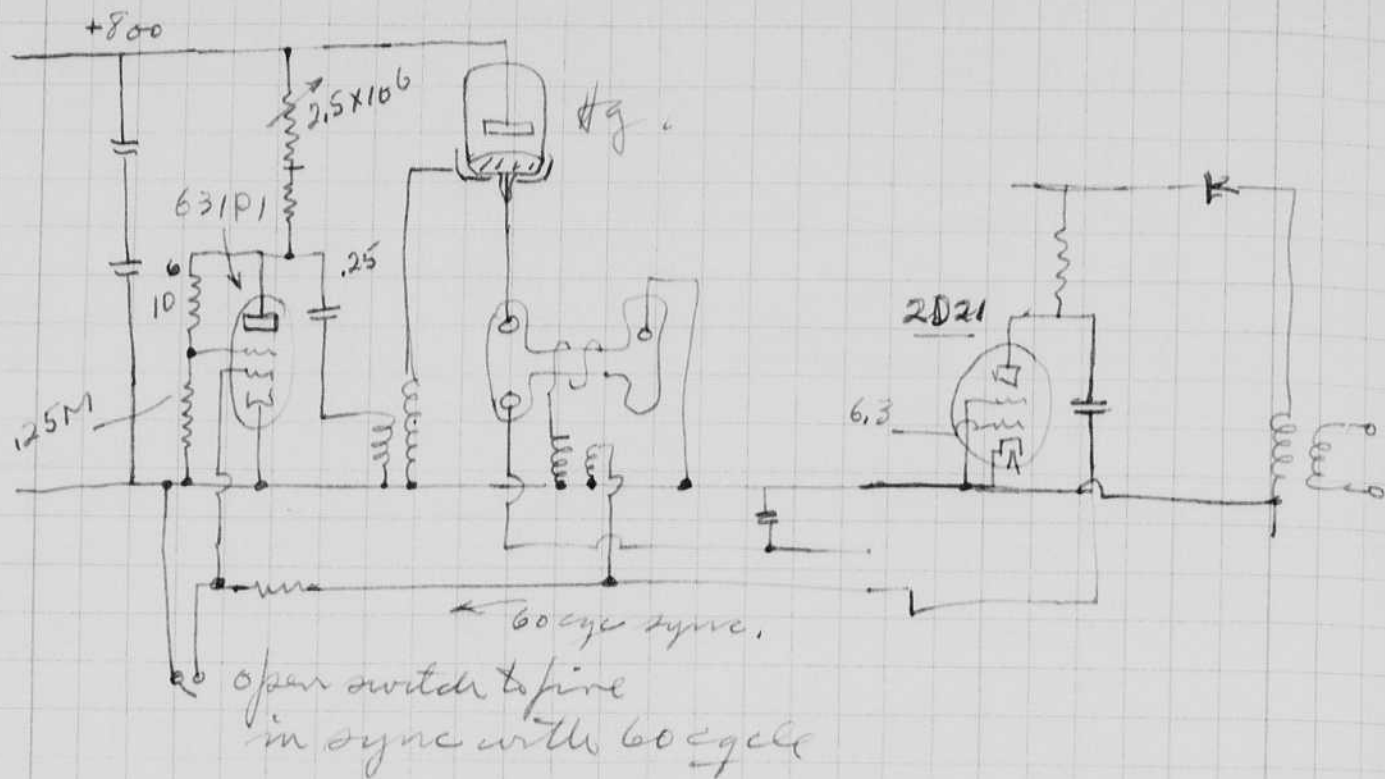 +800
2.5×10⁶
Hg.
631P1
.25
10⁶
.25M
2D21
6.3
60 cyc sync.
open switch to fire
in sync with 60 cycle